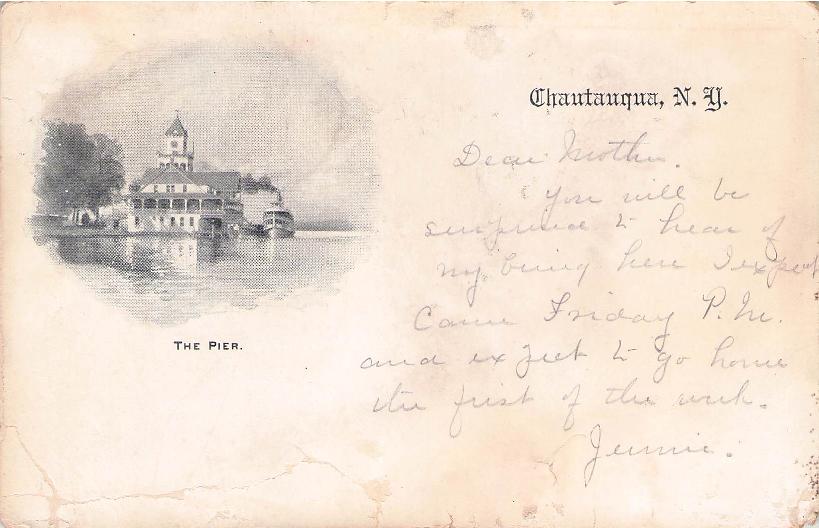 Chautauqua, N. Y.
Dear Mother.
You will be
surprised to hear of
my being here I expect
Came Friday P. M.
and expect to go home
the first of the week.
Jennie.
THE PIER.